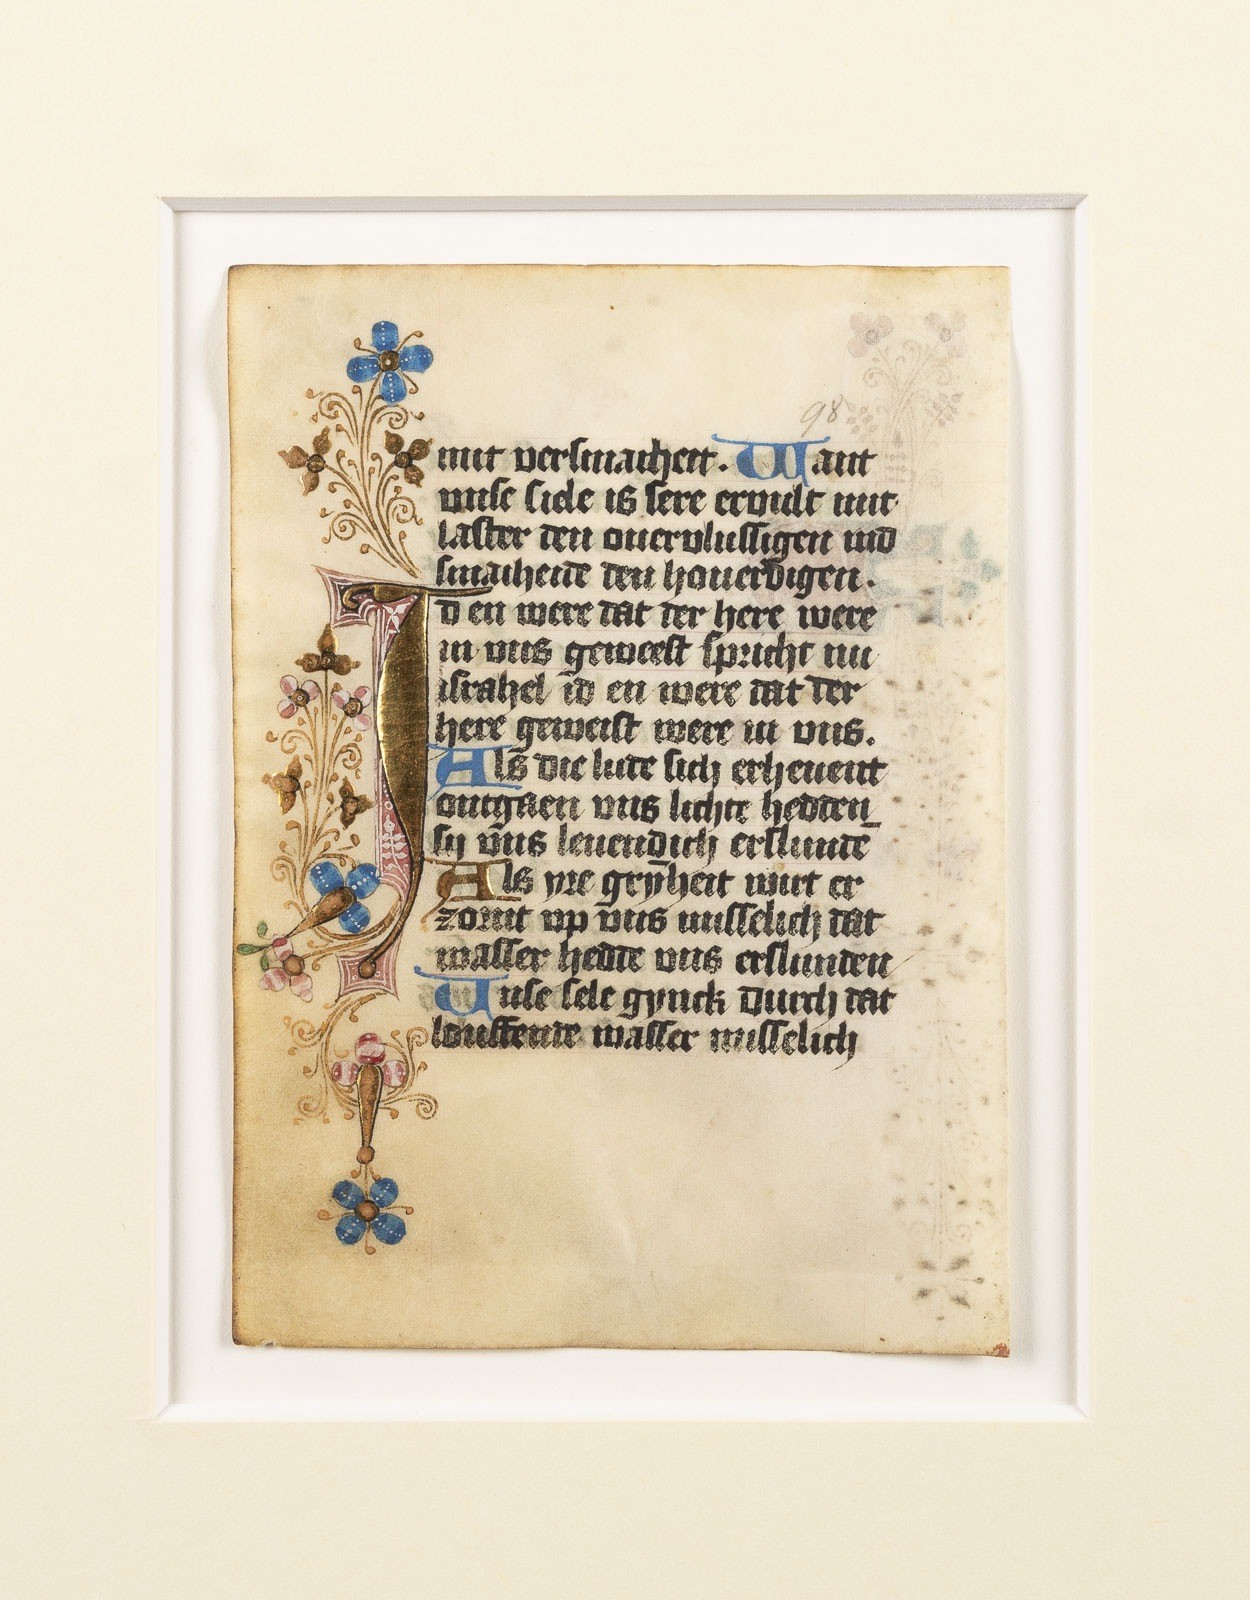 98
mit versmaiheit. Want
unse siele is sere ervult mit
laster den overvlussigen und
smaiheit den hoverdigen.
Id en were dat der here were
in uns geweest spricht nu
israhel id en were dat der
here geweist were in uns.
Als die lude sich erhevent
ontgaen uns lichte hedden
sij uns levendich erslunde
Als yre gryheit wirt er
zornt up uns misselich dat
wasser hedde uns erslunden
Unse sele gynck durch dat
louffende wasser misselich